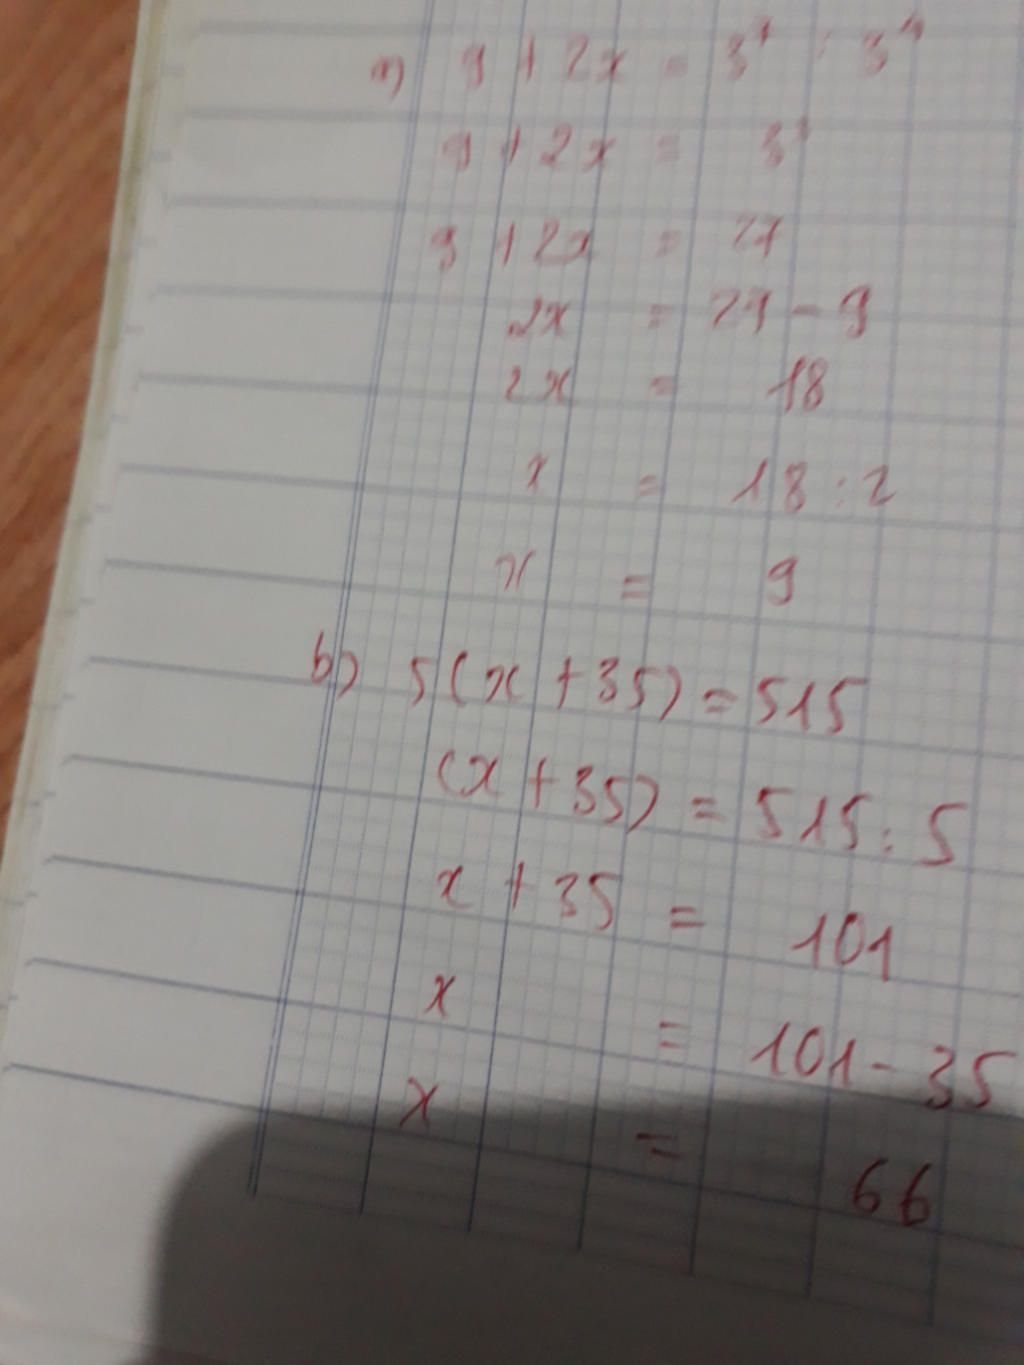 a) 9 + 2x = 3⁷ : 3⁴
9 + 2x = 3³
9 + 2x = 27
2x = 27 - 9
2x = 18
x = 18 : 2
x = 9
b) 5(x + 35) = 515
(x + 35) = 515 : 5
x + 35 = 101
x = 101 - 35
x = 66